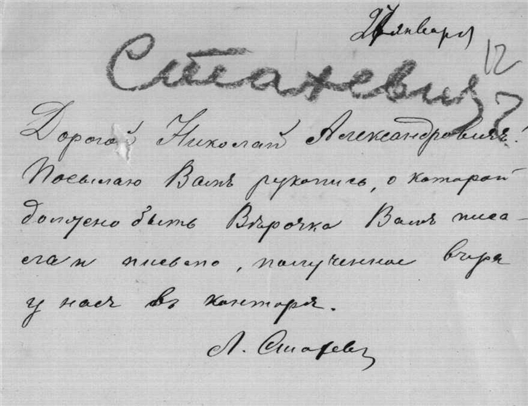 27 января
12
Стахевич
Дорогой Николай Александровичъ!
Посылаю Вамъ рукопись, о которой
должно быть Вѣрочка Вамъ писа-
ла и письмо, полученное вчера
у насъ въ конторѣ.
Л. Стахевич